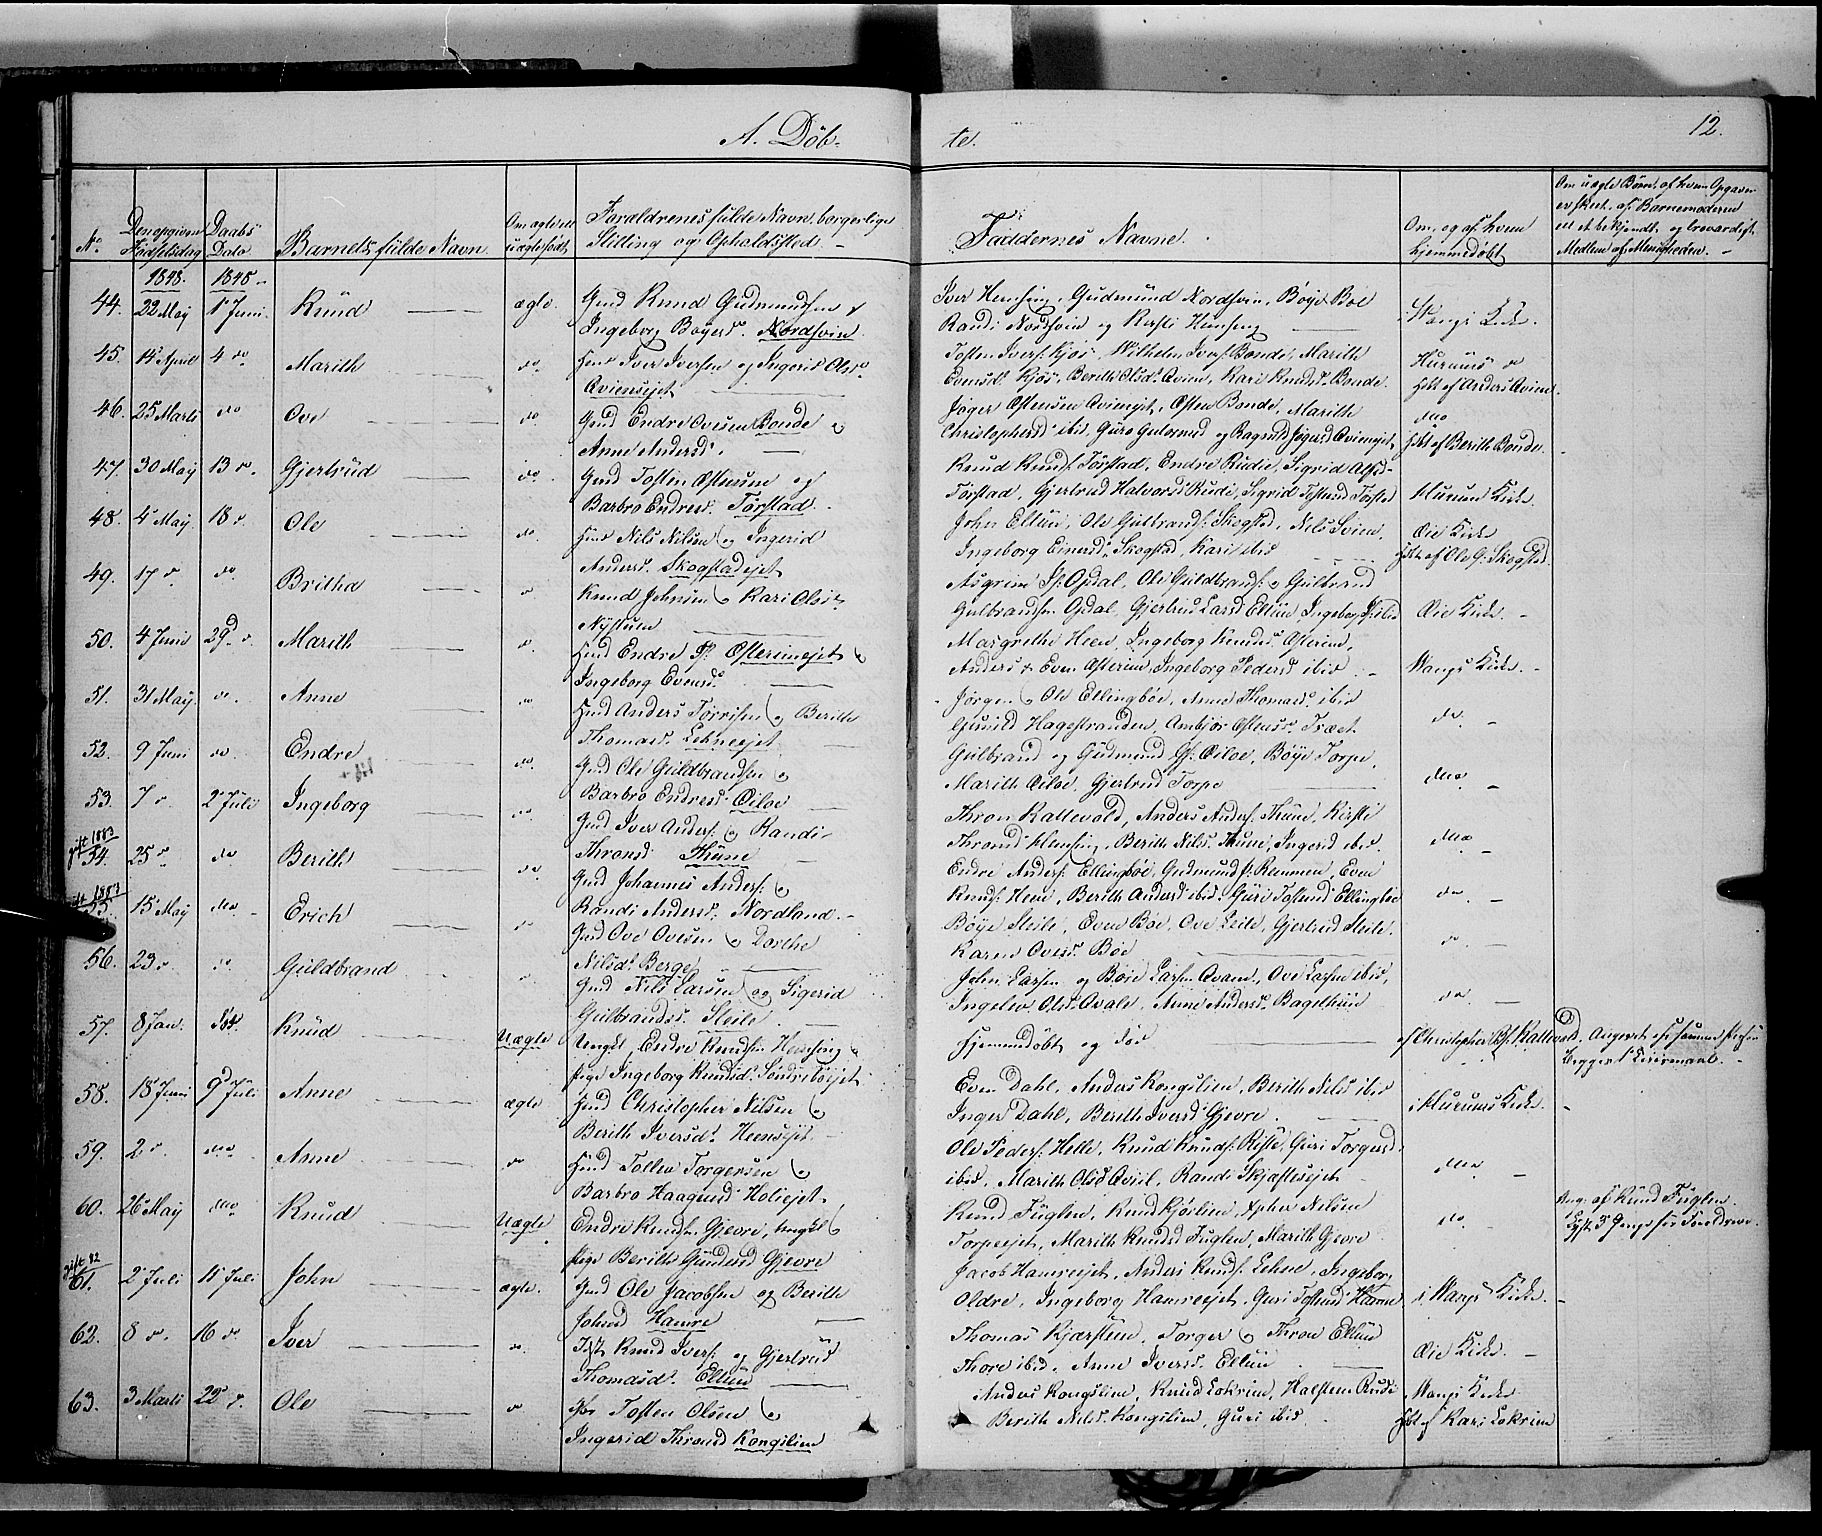 A. Döb-
te.
12.
No
Den opgivne Födselsdag
Daabs Dato
Barnets fulde Navn.
Om ægte ell uægte født
Forældrenes fulde Navn, borgerlige Stilling og Opholdssted.
Faddernes Navne.
Om, og af hvem hjemmedøbt
Om uægte Børn, af hvem Opgaven er skeet, af Barnemoderen ell et bekjendt og troværdigt Medlem af Menigheden.
1848. 1848
44. 22 May 1 Juni. Knud ægte. Gmd Knud Gudmundsen &
Ingeborg Boyesd. Nordsvin
Iver Hemsing, Gudmund Nordsvin, Böye Böe
Randi Nordsvin og Kersti Hemsing
Wangs Kirke.
45. 14 April 4 do Marith do. Iver Iversen og Ingerid Olsd.
Qviensejet
Tosten Ivers. Kjös, Wilhelm Ivers. Bonde, Marith
Evensd. Kjös, Berith Olsd. Qvien, Kari Knudsd. Bonde.
Hurums
hdt af Anders Qviene
46. 25 Marts do Ove do. Gmd Endre Ovesen Bonde
Anne Andersd.
Jöger Östensen Qviensejet, Östen Bonde, Marith
Christophersd ibid, Guro
og Ragnild Jögersd Qviensejet
do
hdt af Berith Bonde.
47. 30 May 13 d. Gjertrud do. Gmd Tosten Östensen og
Barbro Endresd. Törstad.
Knud Knuds. Törstad, Endre Rudie, Sigrid
Törstad, Gjertrud Halvorsd Rudi, Sigrid Tostensd Törstad
Hurum Kirke.
48. 4 May. 18 d. Ole do. Nils Nilsen og Ingerid
Andersd. Skogstadejet
John Eltun, Ole Gulbrands. Skogstad, Nils Svien,
Ingeborg Einersd. Skogstad, Kari ibid
Öie Kirke
hdt af Ole G. Skogstad.
49. 17 d. do. Britha Knud Johnsen og Kari Olsd.
Nystuen
Asgrim Opdal, Ole Guldbrands. & Gulbrand
Gulbrandsen Opdal, Gjertrud Larsd Eltun, Ingeborg ibid
Öie Kirke.
50. 4 Juni 29 d. Marith Endre P. Östereimejet
Ingeborg Evensd.
Margrethe Heen, Ingeborg Knudsd. Östreim,
Anders & Even Östreim, Ingeborg Pedersd ibid
Wangs Kirke.
51. 31 May. do. Anne do Anders Torrisen og Berith
Thomasd. Lehneejet
Jörgen & Ole Ellingböe, Anne Thomasd. ibid
Gunild Hagestranden, Ambjör Östensd. Træet.
do.
52. 9 Juni do. Endre do. Gmd Ole Guldbrandsen &
Barbro Endresd. Öiloe
Gulbrand og Gudmund Öiloe, Böye Torpe,
Marith Öiloe, Gjertrud Torpe
do.
53. 7 d. 2 Juli Ingeborg do. Gmd Iver Anders. & Randi
Thronsd. Thune
Thron Kattevold, Anders Anders. Thune, Kirsti
Thronsd Hemsing, Berith Nilsd. Thune, Ingerid ibid.
do.
gift 1883
54. 25 d. do Berith do. Gmd Johannes Anders. &
Randi Andersd. Nordland.
Endre Anders. Ellingböe, Gudmund Remmen, Even
Knuds. Heen, Berith Andersd ibid. Guri Tostensd Ellingböe
do.
55. 15 May do Erich Gmd Ove Ovesen & Dorthe
Nilsd. Berge
Böye Steile, Even Böe, Ove Leite, Gjertrud Steile.
Karen Ovesd. Böe
do.
56. 23 d. do. Guldbrand Gmd Nils Larsen og Sigerid
Gulbrandsd. Steile
John Larsen og Böie Larsen Qvam, Ove Larsen ibid,
Olsd. Qvale, Anne Andersd. Bagethun
do.
57. 8 Jan. Knud Uægte Ungkl Endre Knudsen Hemsing &
Pige Ingeborg Knudsd. Söndreböejet
hjemmedöbt og död
af Christopher Kattevold.
Angivet af samme
Begges 1ste Leiermaal.
58. 18 Juni 9 Juli Anne ægte. Gmd Christopher Nilsen &
Berith Iversd. Heensejet
Even Dahl, Anders Kongslien, Berith Nilsd ibid
Inger Dahl, Berith Iversd Gjevre.
i Hurums Kirke.
59. 2 d. do. Anne do Tollev Torgersen &
Barbro Haagensd Holiejet
Ole Peders. Helle, Knud Knuds. Riste, Guri Torgersd.
ibid, Marith Olsd Qviel, Randi Skjaftesejet
do
60. 26 May do Knud Uægte Endre Knudsen Gjevre, Ungkl &
Pige Berith Gundersd Gjevre
Knud Fuglen, Knud Kjörlien, Nilsen
Torpeejet, Marith Knudsd Fuglen, Marith Gjevre
do.
Ang. af Knud Fuglen.
gift 82
61. 2 Juli 11 Juli John ægte. Gmd Ole Jacobsen og Berith
Johnsd Hamre
Jacob Hamreejet, Anders Knuds. Lehne, Ingeborg
Oldre, Ingeborg Hamreejet, Guri Tostensd Hamre
i Wangs Kirke.
62. 8 d. 16 do Iver do. Knud Ivers. og Gjertrud
Thomasd. Eltun
Thomas Kjærstein, Torger & Thron Eltun
Thore ibid, Anne Iversd. Eltun
Öie Kirke.
63. 3 Marts 22 d. Ole do Tosten Olsen &
Ingerid Thronsd Kongslien
Anders Kongslien, Knud Lokrein, Halsten Rudi
Berith Nilsd. Kongslien, Guri ibid.
Wangs Kirke
hdt af Kari Lokrein